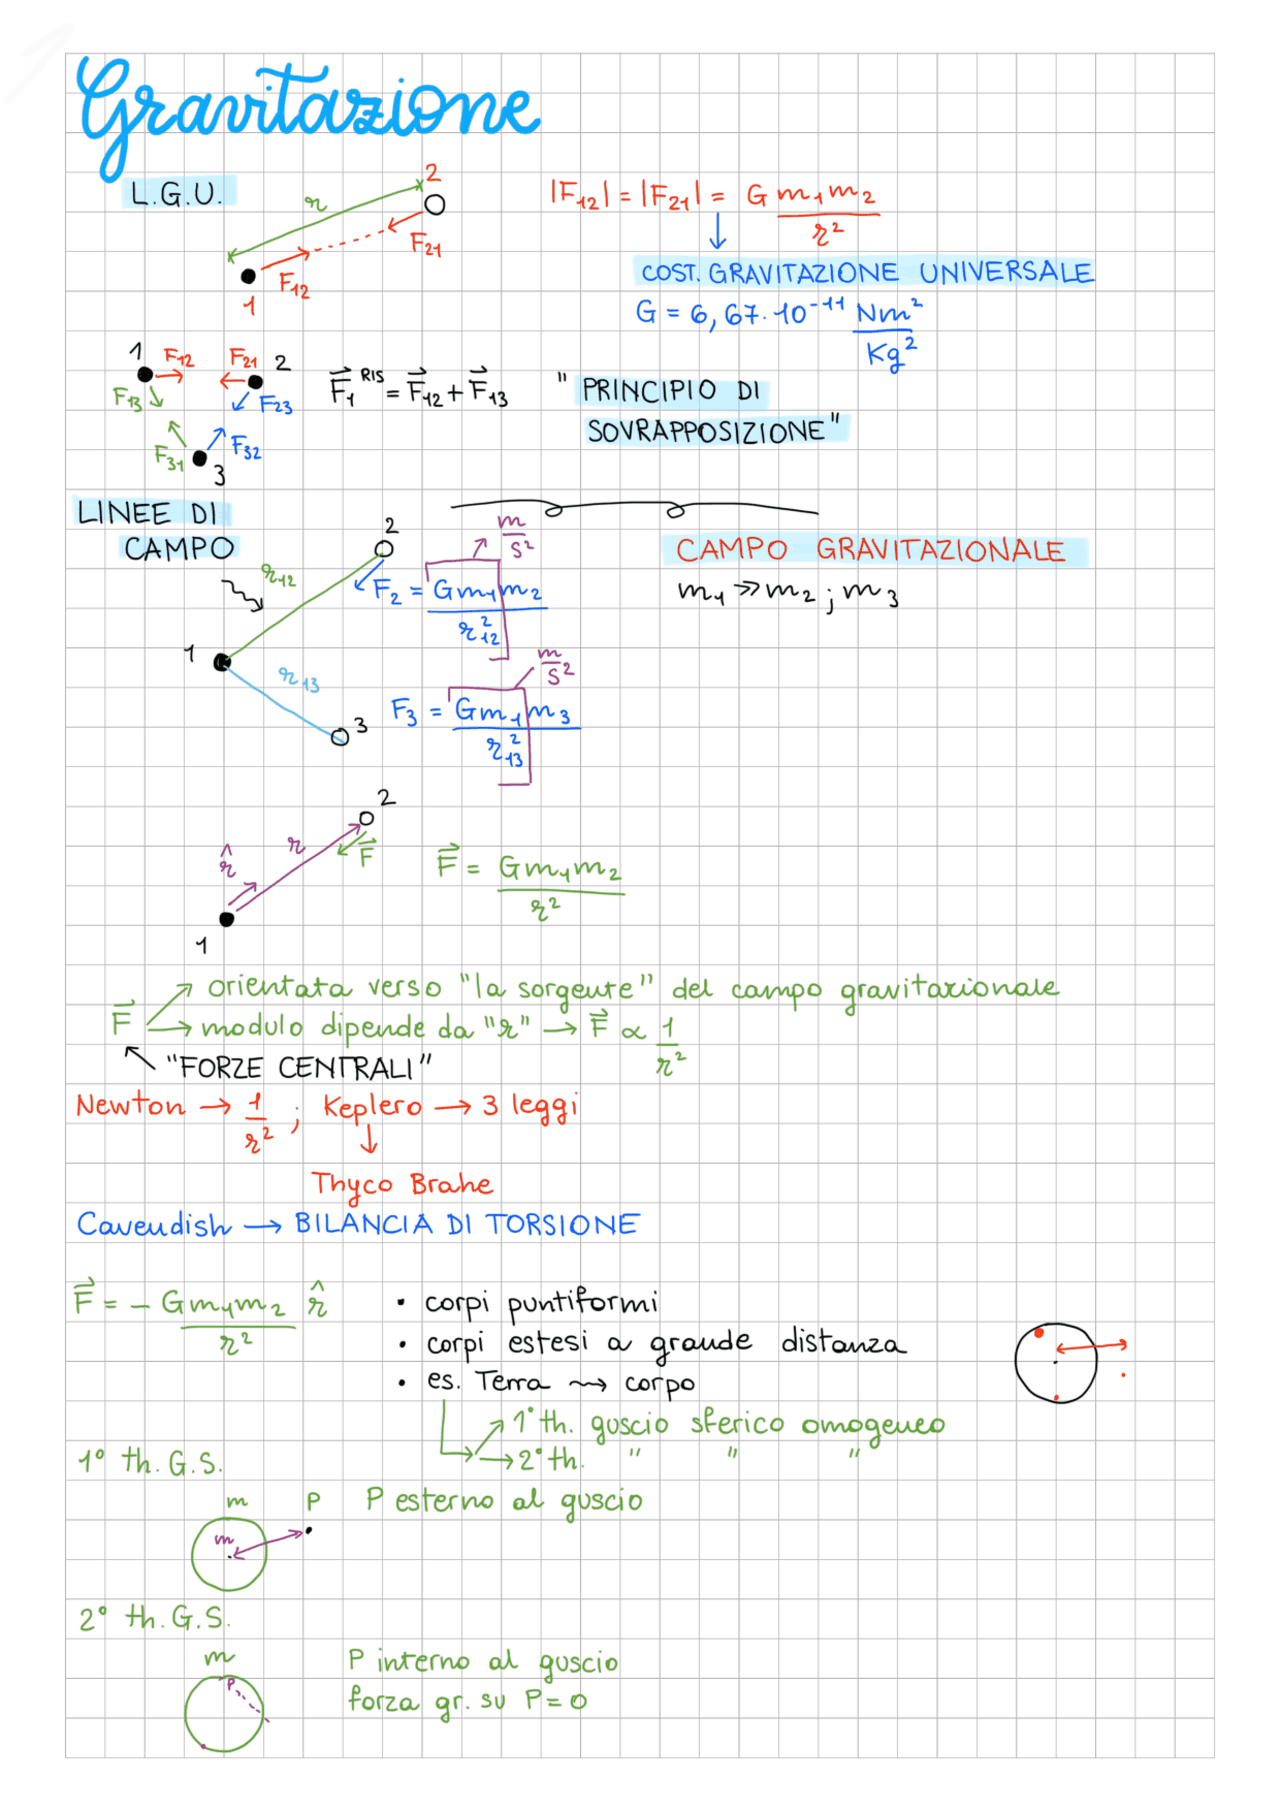 Gravitazione
L.G.U.
r
2
F₂₁
F₁₂
1
|F₁₂| = |F₂₁| = G m₁m₂ / r²
COST. GRAVITAZIONE UNIVERSALE
G = 6,67·10⁻¹¹ Nm² / Kg²
1 F₁₂ F₂₁ 2
F₁₃ F₂₃
F₃₁ F₃₂
3
F⃗₁ᴿᴵˢ = F⃗₁₂ + F⃗₁₃
"PRINCIPIO DI
SOVRAPPOSIZIONE"
LINEE DI
CAMPO
CAMPO GRAVITAZIONALE
m₁ ≫ m₂ ; m₃
2
r₁₂
m/s²
F₂ = Gm₁m₂ / r₁₂²
1
r₁₃
3
m/s²
F₃ = Gm₁m₃ / r₁₃²
2
r̂ r F⃗
1
F⃗ = Gm₁m₂ / r²
F⃗ → orientata verso "la sorgente" del campo gravitazionale
→ modulo dipende da "r" → F⃗ ∝ 1/r²
"FORZE CENTRALI"
Newton → 1/r² ; Keplero → 3 leggi
↓
Thyco Brahe
Cavendish → BILANCIA DI TORSIONE
F⃗ = - Gm₁m₂ / r² r̂
• corpi puntiformi
• corpi estesi a grande distanza
• es. Terra ⇝ corpo
→ 1° th. guscio sferico omogeneo
→ 2° th. " " "
1° th. G.S.
m P
m
P esterno al guscio
2° th. G.S.
m
P
P interno al guscio
forza gr. su P = 0